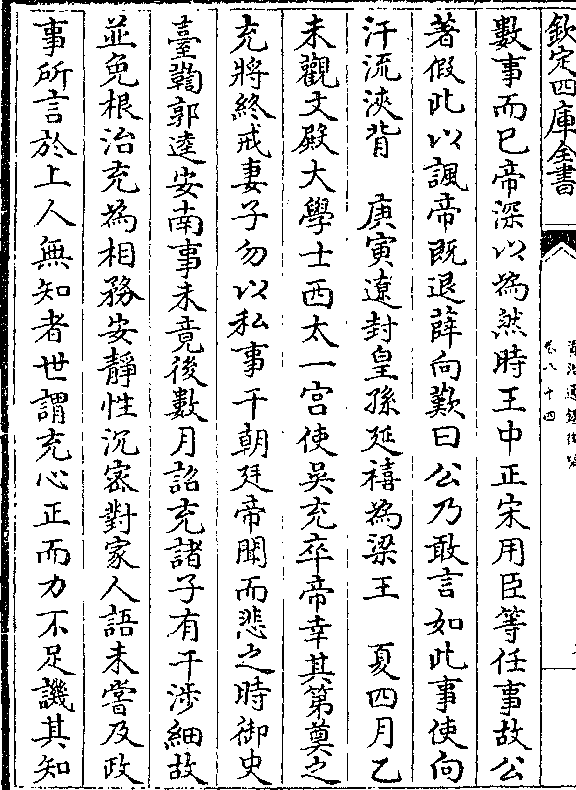 欽定四庫全書
資治通鑑後編
卷八十四
數事而已帝深以為然時王中正宋用臣等任事故公
著假此以諷帝既退薛向歎曰公乃敢言如此事使向
汗流浹背　庚寅遼封皇孫延禧為梁王　夏四月乙
未觀文殿大學士西太一宫使吳充卒帝幸其第奠之
充將終戒妻子勿以私事干朝廷帝聞而悲之時御史
臺鞫郭逵安南事未竟後數月詔充諸子有干涉細故
並免根治充為相務安靜性沉宻對家人語未嘗及政
事所言於上人無知者世謂充心正而力不足譏其知